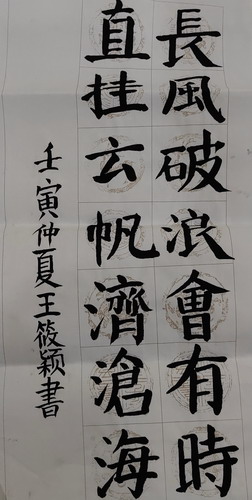 長風破浪會有時
直挂云帆濟滄海
壬寅仲夏王筱颖書